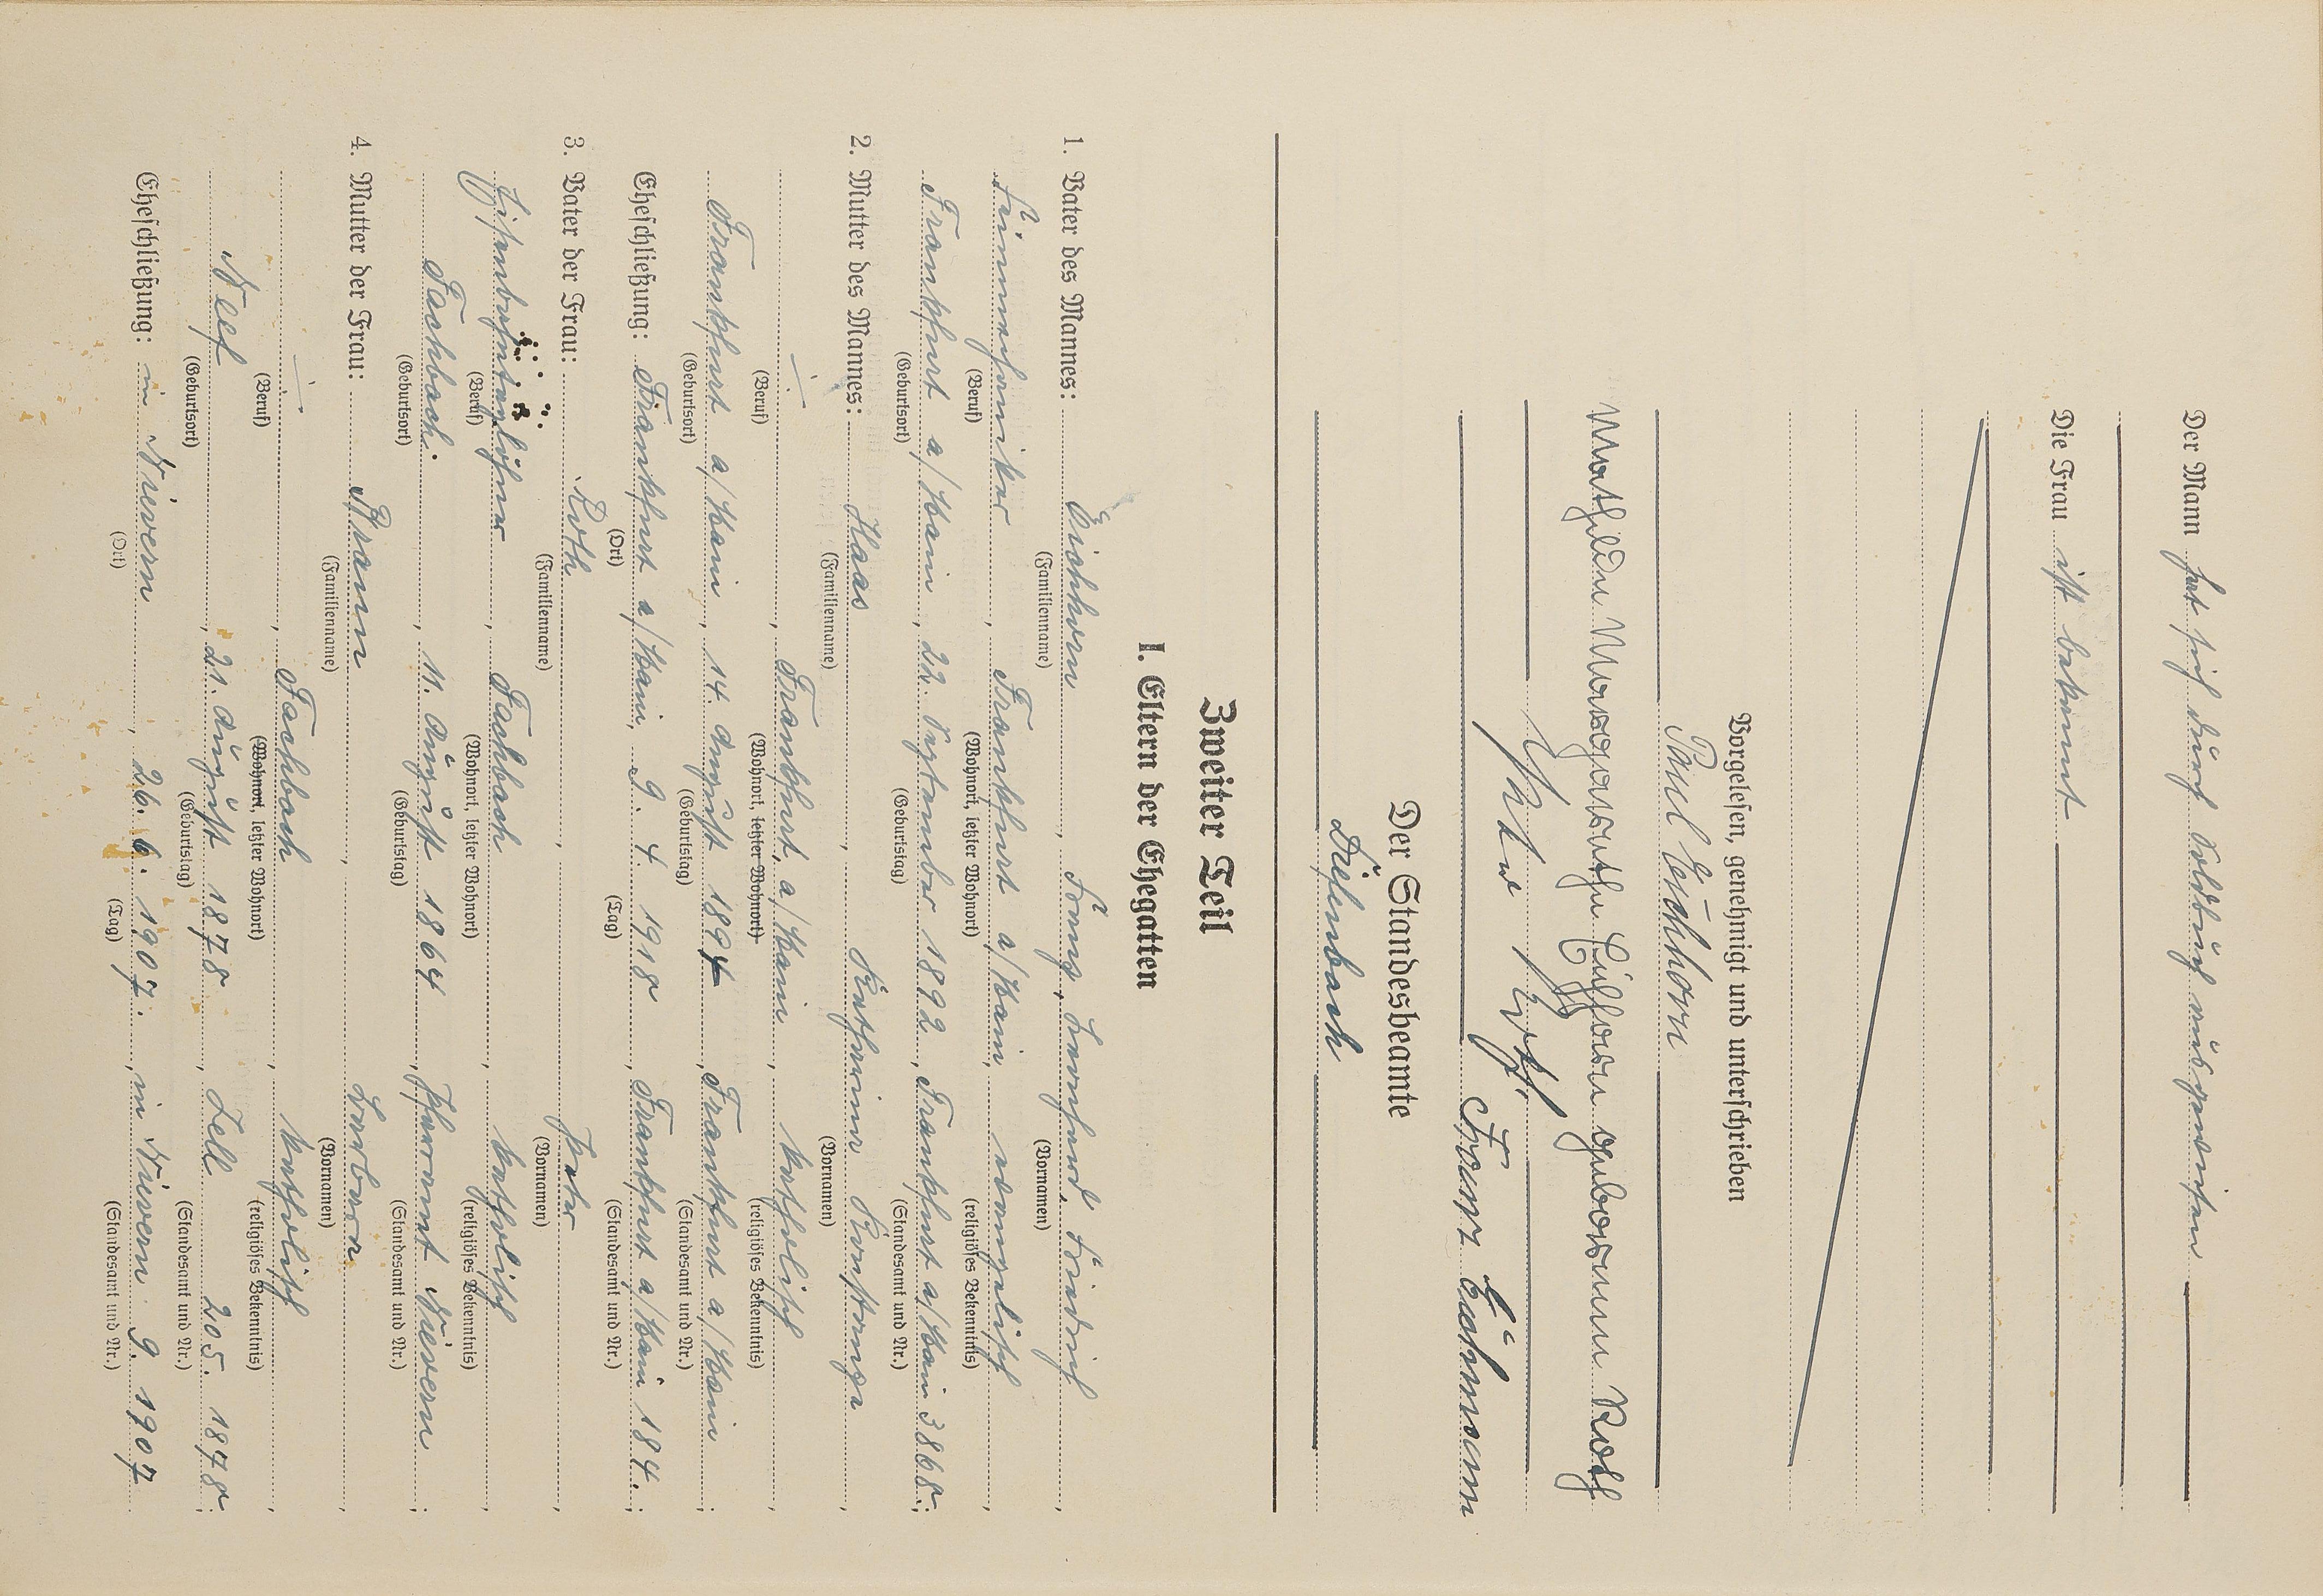 Der Mann hat sich durch Soldbuch ausgewiesen
Die Frau ist bekannt
Vorgelesen, genehmigt und unterschrieben
Paul Eichhorn
Mathilde Margarethe Eichhorn geborenene Roth
Peter Roth, Franz Bachmann
Der Standesbeamte
Diesenbach
Zweiter Teil
I. Eltern der Ehegatten
1. Vater des Mannes: Eichhorn, Leonhard, Friedrich
(Familienname) (Vornamen)
Feinmechaniker, Frankfurt a/Main, evangelisch,
(Beruf) (Wohnort, letzter Wohnort) (religiöses Bekenntnis)
Frankfurt a/Main, 22. September 1892, Frankfurt a/Main 3868;
(Geburtsort) (Geburtstag) (Standesamt und Nr.)
2. Mutter des Mannes: Haas, Katharina Konstanze,
(Familienname) (Vornamen)
-, Frankfurt a/Main, katholisch,
(Beruf) (Wohnort, letzter Wohnort) (religiöses Bekenntnis)
Frankfurt a/Main, 14. August 1894, Frankfurt a/Main;
(Geburtsort) (Geburtstag) (Standesamt und Nr.)
Eheschließung: Frankfurt a/Main, 9. 4. 1918, Frankfurt a/Main 184.;
(Ort) (Tag) (Standesamt und Nr.)
3. Vater der Frau: Roth, Peter,
(Familienname) (Vornamen)
Fachbach, katholisch,
(Beruf) (Wohnort, letzter Wohnort) (religiöses Bekenntnis)
Fachbach, 11. August 1864, Pfarramt Nievern;
(Geburtsort) (Geburtstag) (Standesamt und Nr.)
4. Mutter der Frau: Kramm, Barbara,
(Familienname) (Vornamen)
-, Fachbach, katholisch,
(Beruf) (Wohnort, letzter Wohnort) (religiöses Bekenntnis)
Neef, 21. August 1878, Zell 205. 1878;
(Geburtsort) (Geburtstag) (Standesamt und Nr.)
Eheschließung: in Nievern, 26. 6. 1907., in Nievern 9. 1907
(Ort) (Tag) (Standesamt und Nr.)